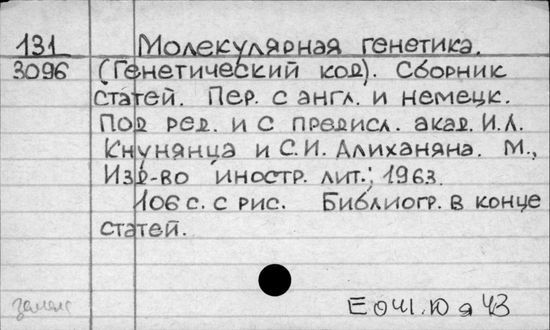 131 Молекулярная генетика.
3096 (Генетический код). Сборник
статей. Пер. с англ. и немецк.
Под ред. и с предисл. акад. И.Л.
Кнунянца и С.И. Алиханяна. М.,
Изд-во иностр. лит., 1963.
106 с. с рис. Библиогр. в конце
статей.
Е 041.Ю я 43